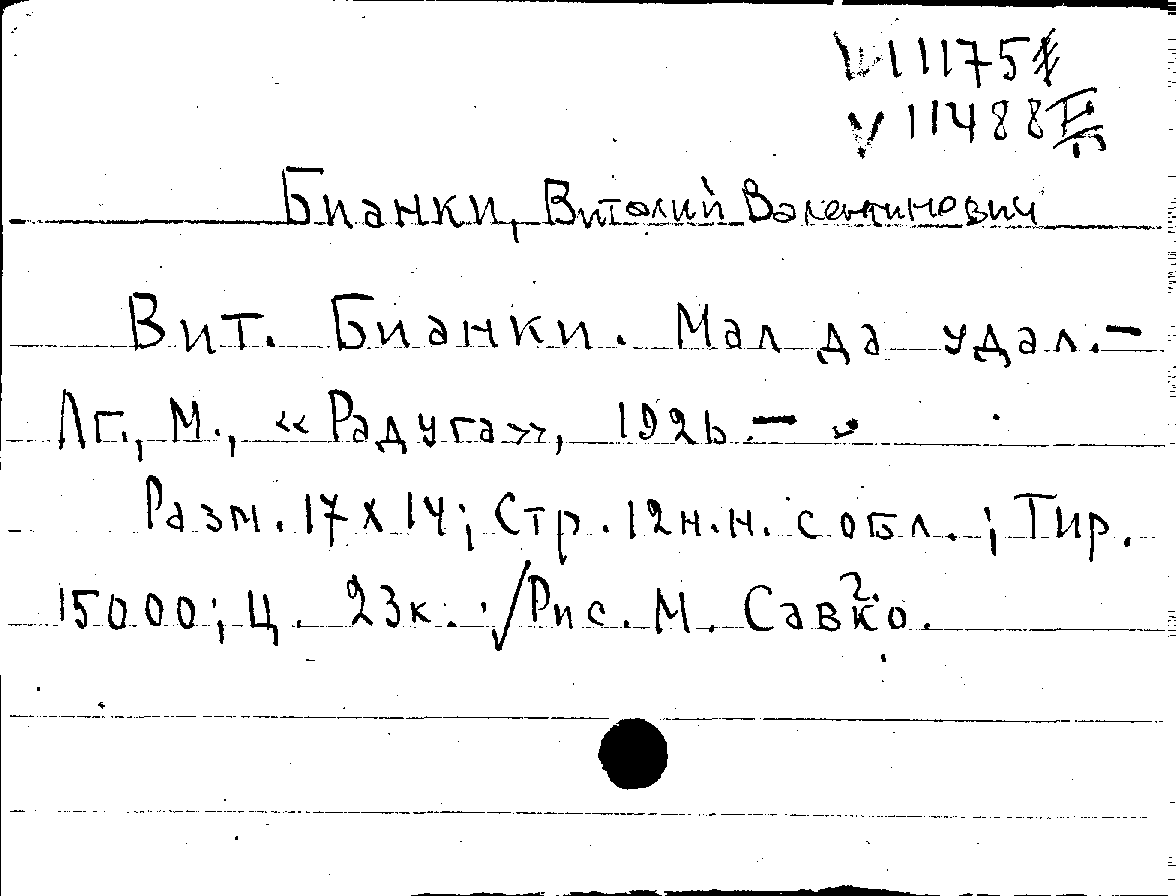 111751
V 11488
Бианки, Виталий Валентинович
Вит. Бианки. Мал да удал. –
Лг., М., «Радуга», 1926. –
Разм. 17 x 14; Стр. 12 н.н. с обл.; Тир.
15000; Ц. 23к. √ Рис. М. Савко.